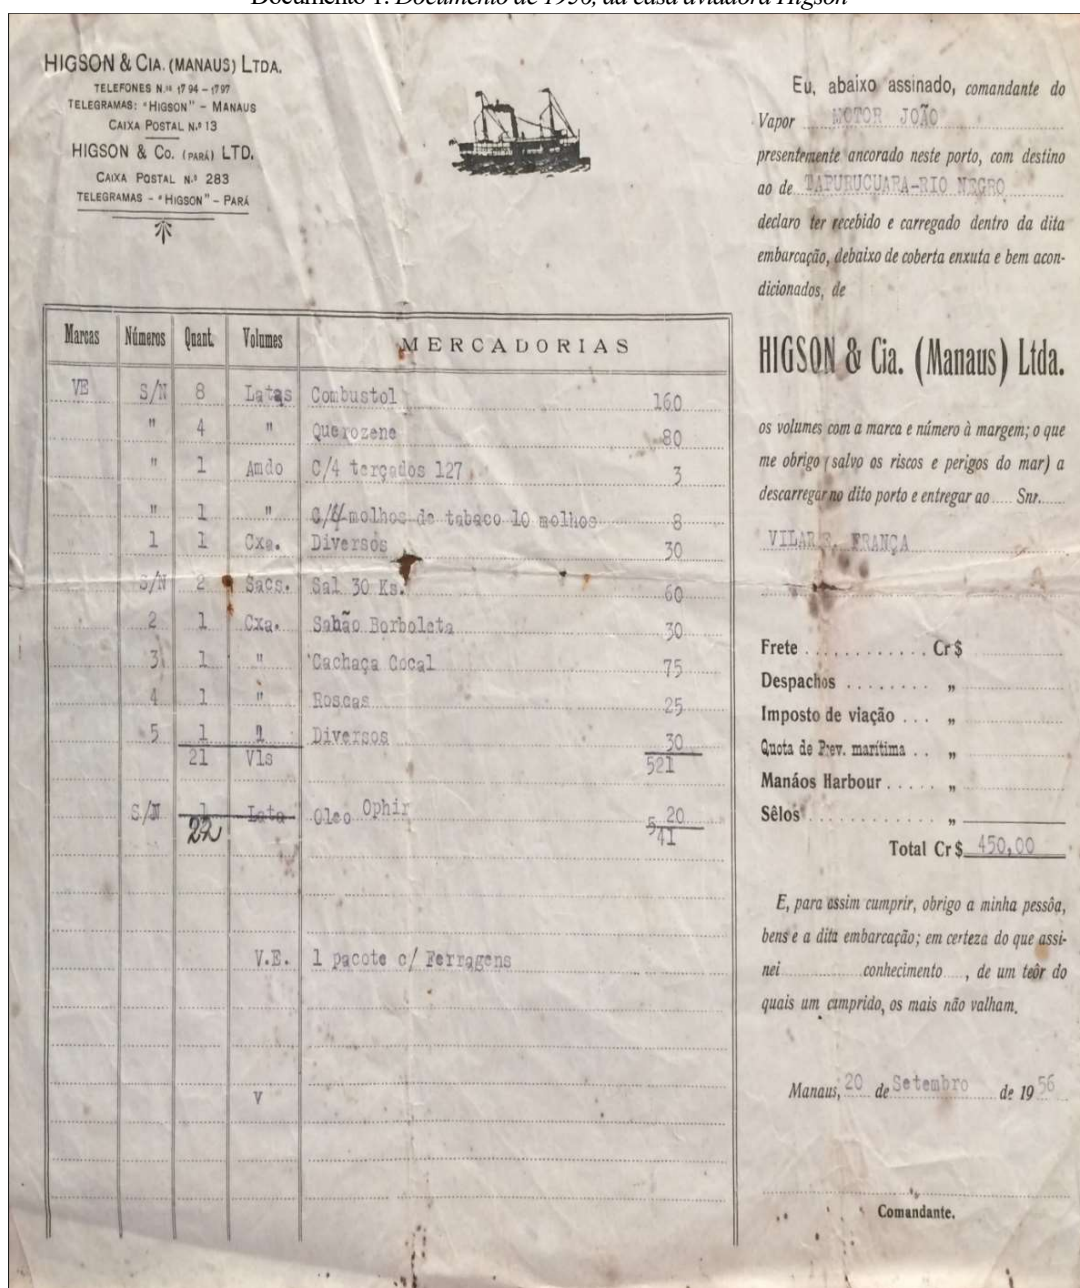 Documento 1: Documento de 1956, da casa aviadora Higson
HIGSON & CIA. (MANAUS) LTDA.
TELEFONES N.os 1794 - 1797
TELEGRAMAS: "HIGSON" - MANAUS
CAIXA POSTAL N.º 13
HIGSON & Co. (PARÁ) LTD.
CAIXA POSTAL N.º 283
TELEGRAMAS - "HIGSON" - PARÁ
Marcas Números Quant. Volumes MERCADORIAS
VE S/N 8 Latas Combustol 160
" 4 " Querozene 80
" 1 Amdo C/4 terçados 127 3
" 1 " C/4 molhos de tabaco 10 molhos 8
1 1 Cxa. Diversos 30
S/N 2 Sacs. Sal 30 Ks. 60
2 1 Cxa. Sabão Borboleta 30
3 1 " Cachaça Cocal 75
4 1 " Roscas 25
5 1 " Diversos 30
21 Vls 521
S/N 1 Lata Oleo Ophir 20
22 541
V.E. 1 pacote c/ Ferragens
V
Eu, abaixo assinado, comandante do
Vapor MOTOR JOÃO
presentemente ancorado neste porto, com destino
ao de TAPURUCUARA-RIO NEGRO
declaro ter recebido e carregado dentro da dita
embarcação, debaixo de coberta enxuta e bem acon-
dicionados, de
HIGSON & Cia. (Manaus) Ltda.
os volumes com a marca e número à margem; o que
me obrigo (salvo os riscos e perigos do mar) a
descarregar no dito porto e entregar ao ..... Snr.....
VILAR E. FRANÇA
Frete ............ Cr$
Despachos ........ "
Imposto de viação ... "
Quota de Prev. marítima .. "
Manáos Harbour ..... "
Sêlos ............ "
Total Cr$ 450,00
E, para assim cumprir, obrigo a minha pessôa,
bens e a dita embarcação; em certeza do que assi-
nei ............ conhecimento ....., de um teôr do
quais um cumprido, os mais não valham.
Manaus, 20 de Setembro de 19 56
Comandante.